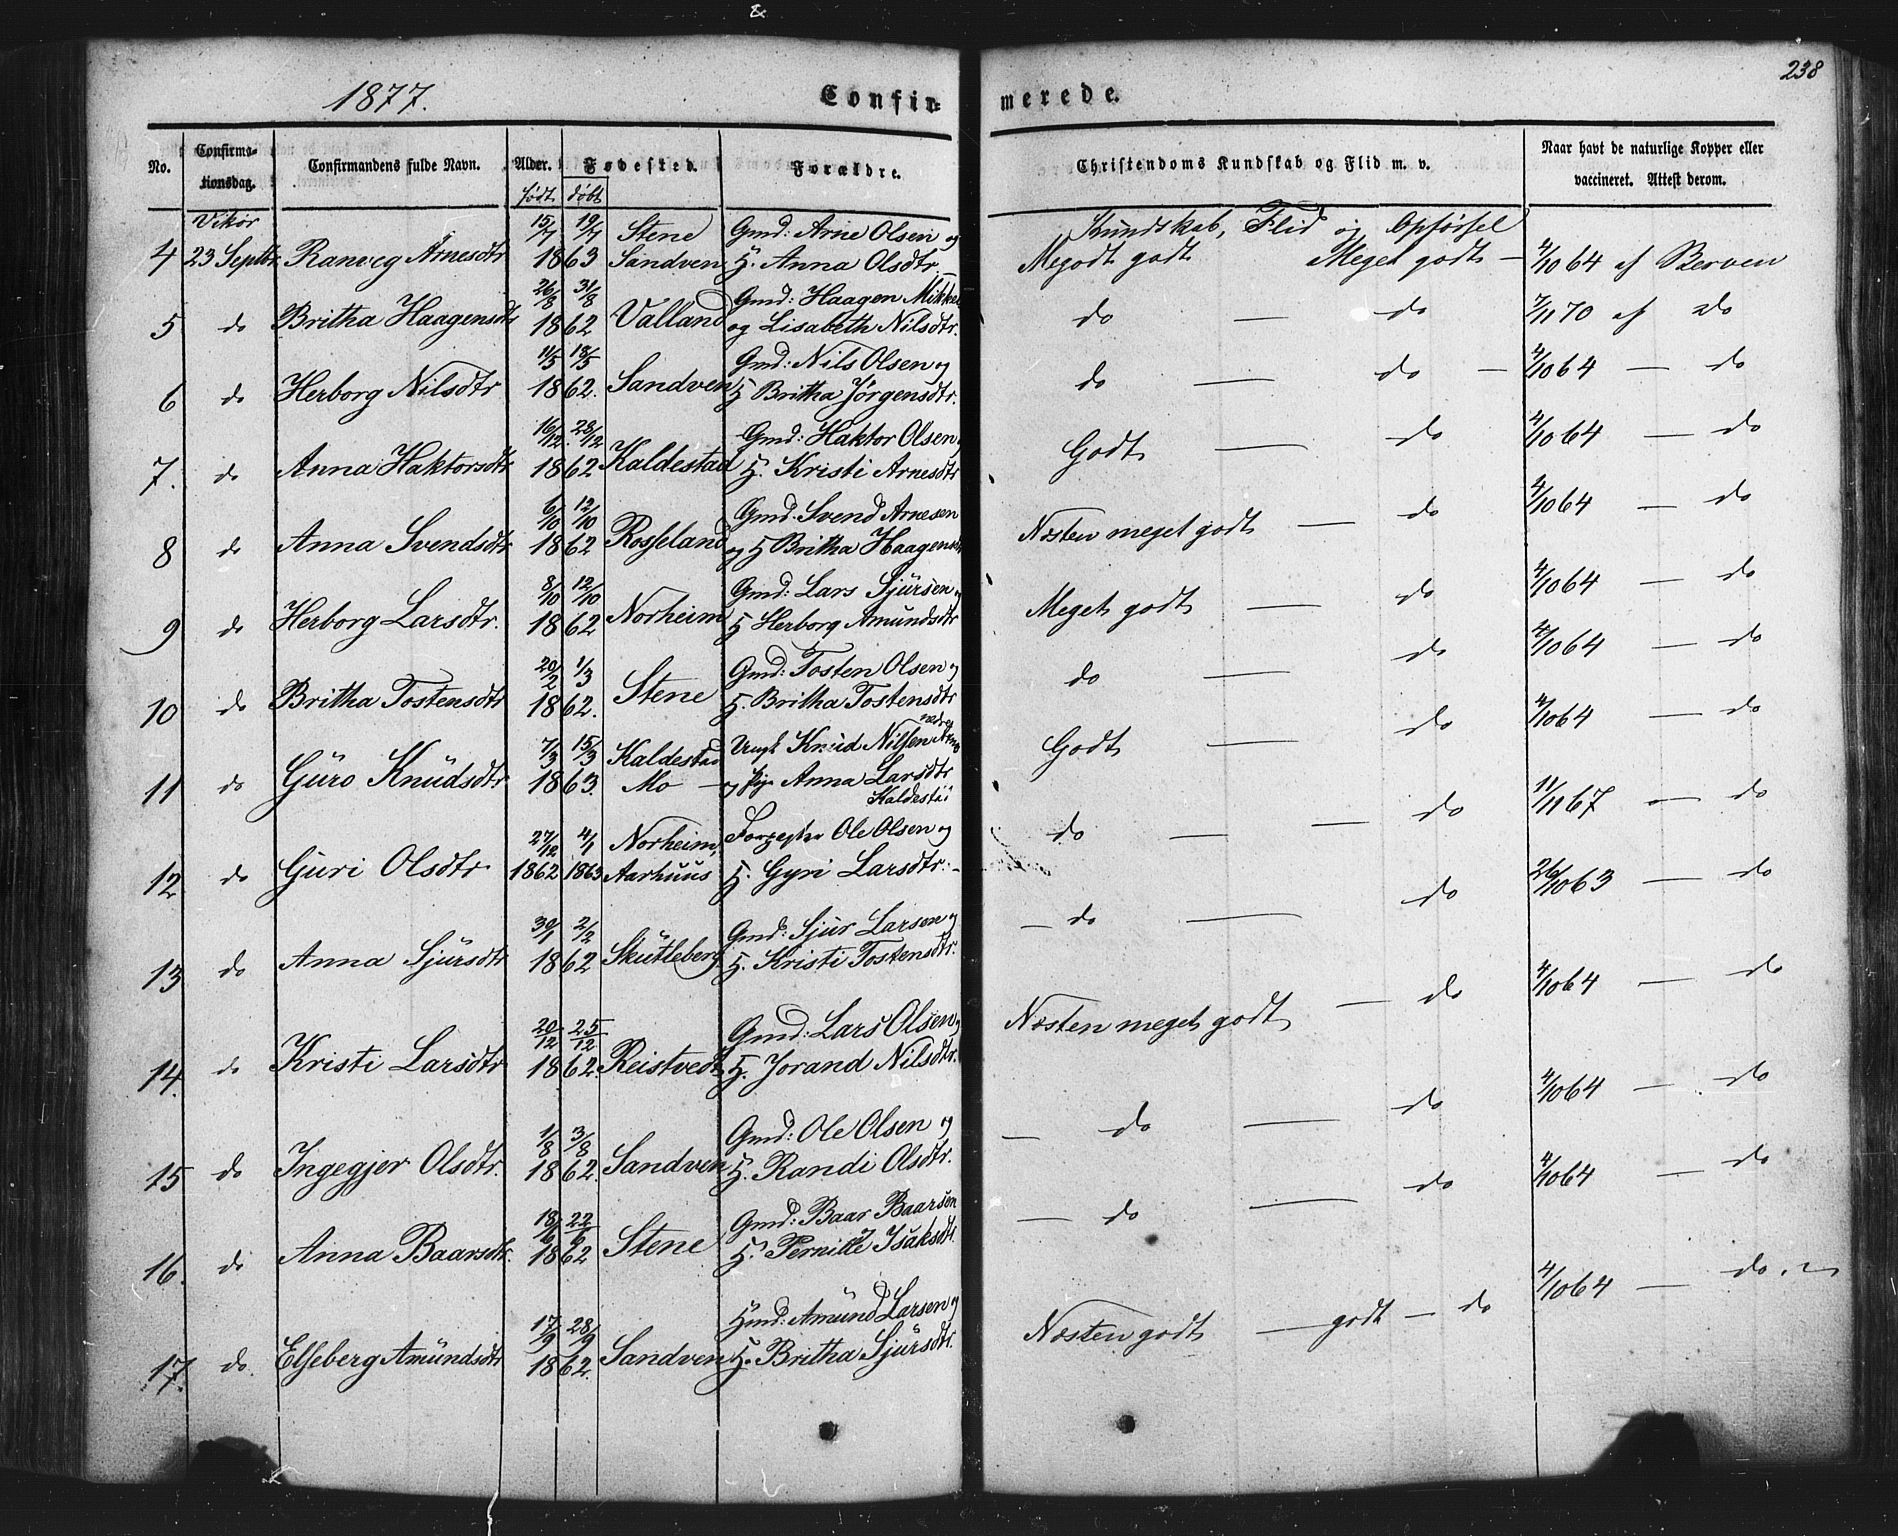 238
1877.
Confir-
merede.
No.
Confirma-
tionsdag.
Confirmandens fulde Navn.
Alder.
Fødested.
Forældre.
født
døbt
Christendoms Kundskab og Flid m. v.
Naar havt de naturlige Kopper eller
vaccineret. Attest derom.
Vikør 15/7 19/7 Stene Gmd: Arne Olsen og Kundskab, Flid og Opførsel
4 23 Septbr Ranveg Arnesdtr 1863 Sandven H. Anna Olsdtr. Megodt godt Meget godt — 4/10 64 af Berven
26/8 31/8 Gmd: Haagen Mikkel
5 do Britha Haagensdtr 1862 Valland og Lisabeth Nilsdtr. do — do 7/11 70 af Do
11/5 18/5 Gmd: Nils Olsen og
6 do Herborg Nilsdtr 1862. Sandven H Britha Jørgensdtr. do — do — 4/10 64 — do
16/12 28/12 Gmd: Haktor Olsen
7. do Anna Haktorsdtr 1862 Kaldestad H. Kristi Arnesdtr Godt — do 4/10 64 — do
6/10 12/10 Gmd. Svend Arnesen
8 do Anna Svendsdtr 1862 Rosseland og H Britha Haagensd Næsten meget godt — do 4/10 64 — do
8/10 12/10 Gmd: Lars Sjürsen og
9 do Herborg Larsdtr. 1862 Norheim H Herborg Amundsdtr Meget godt — do 4/10 64 — do
20/2 1/3 Gmd: Tosten Olsen og
10 do Britha Tostensdtr 1862. Stene H. Britha Tostensdtr do — do 4/10 64 — do
7/3 15/3 Kaldestad Ungk Knüd Nilsen
11 do Güro Knüdsdtr 1863. Mo — og Pige Anna Larsdtr Godt — do 4/10 64 — do
Kaldestad
27/12 4/1 Norheim, Ole Olsen og
12 do Guri Olsdtr 1862 1863 Aarhuus H. Gyri Larsdtr. — do — — do 11/11 67 — do
30/1 2/2 Gmd: Sjur Larsen og
13 do Anna Sjürsdtr 1862 Skütleberg H. Kristi Tostensdtr. — do — do 26/10 63 — do
20/12 25/12 Gmd: Lars Olsen og
14. do Kristi Larsdtr 1862. Reistvedt H. Jorand Nilsdtr. Næsten meget godt — do 4/10 64 — do
1/8 3/8 Gmd: Ole Olsen og
15 do Ingegjer Olsdtr. 1862. Sandven H. Randi Olsdtr. — do — do 4/10 64 — do
18/6 22/6 Gmd: Baar Baarsen
16. do Anna Baarsdtr. 1862 Stene H. Pernille Isaksdtr. — do — do 4/10 64 — do
17/9 28/9 Hmd: Amünd Larsen og
17. do. Elseberg Amündsdtr 1862. Sandven H. Britha Sjürsdtr. Næsten godt — godt — do 4/10 64 — do.